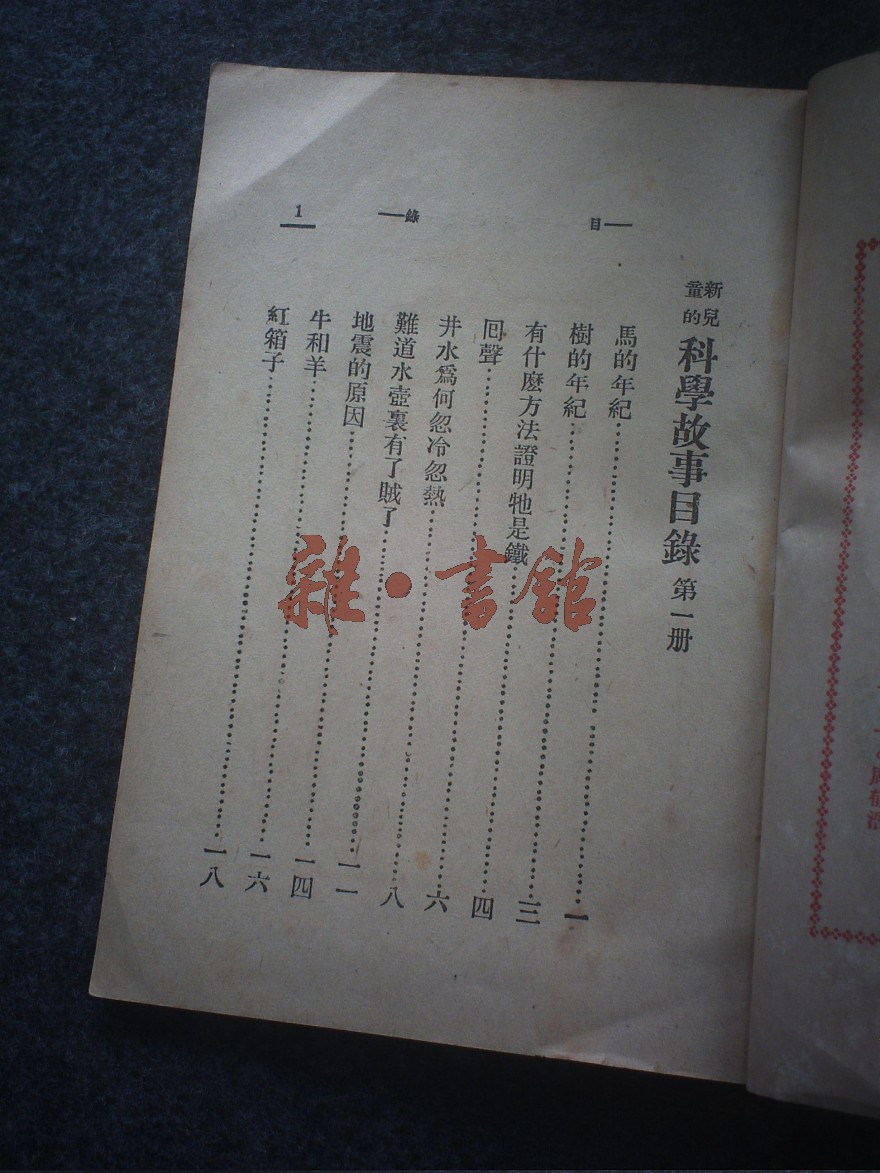 新兒童的 科學故事目錄 第一册
馬的年紀……一
樹的年紀……三
有什麽方法證明牠是鐵……四
囘聲……六
井水爲何忽冷忽熱……八
難道水壺裏有了賊了……一一
地震的原因……一四
牛和羊……一六
紅箱子……一八
目錄
1
雜·書館